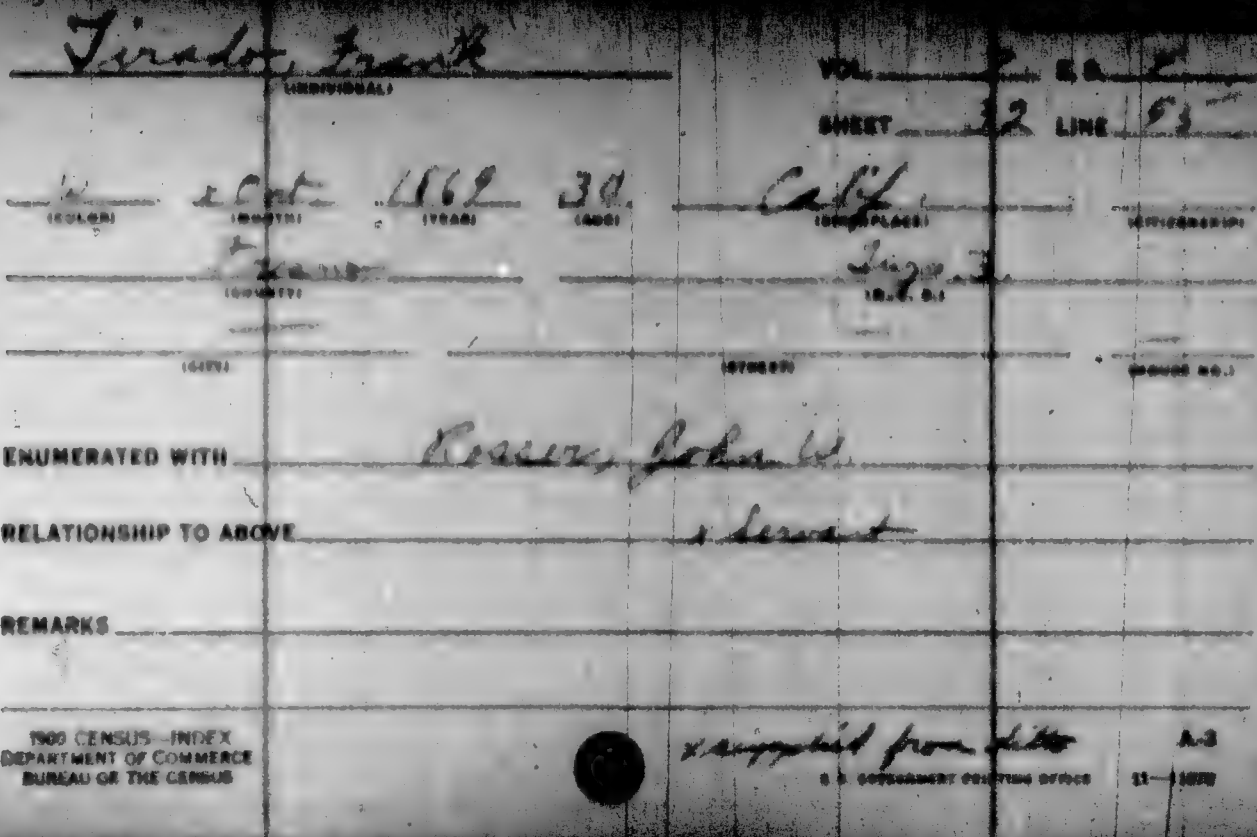 Tirador, Frank
(INDIVIDUAL)
VOL. E.D.
SHEET 32 LINE
W x Oct 1869 30 Calif
(COLOR) (MONTH) (YEAR) (AGE) (BIRTHPLACE) (CITIZENSHIP)
Inyo 3
(COUNTY) (M. C. D.)
(CITY) (STREET) (HOUSE NO.)
ENUMERATED WITH John W.
RELATIONSHIP TO ABOVE x Servant
REMARKS
1900 CENSUS—INDEX
DEPARTMENT OF COMMERCE
BUREAU OF THE CENSUS
x supplied from ditto
A-3
U.S. GOVERNMENT PRINTING OFFICE 11—